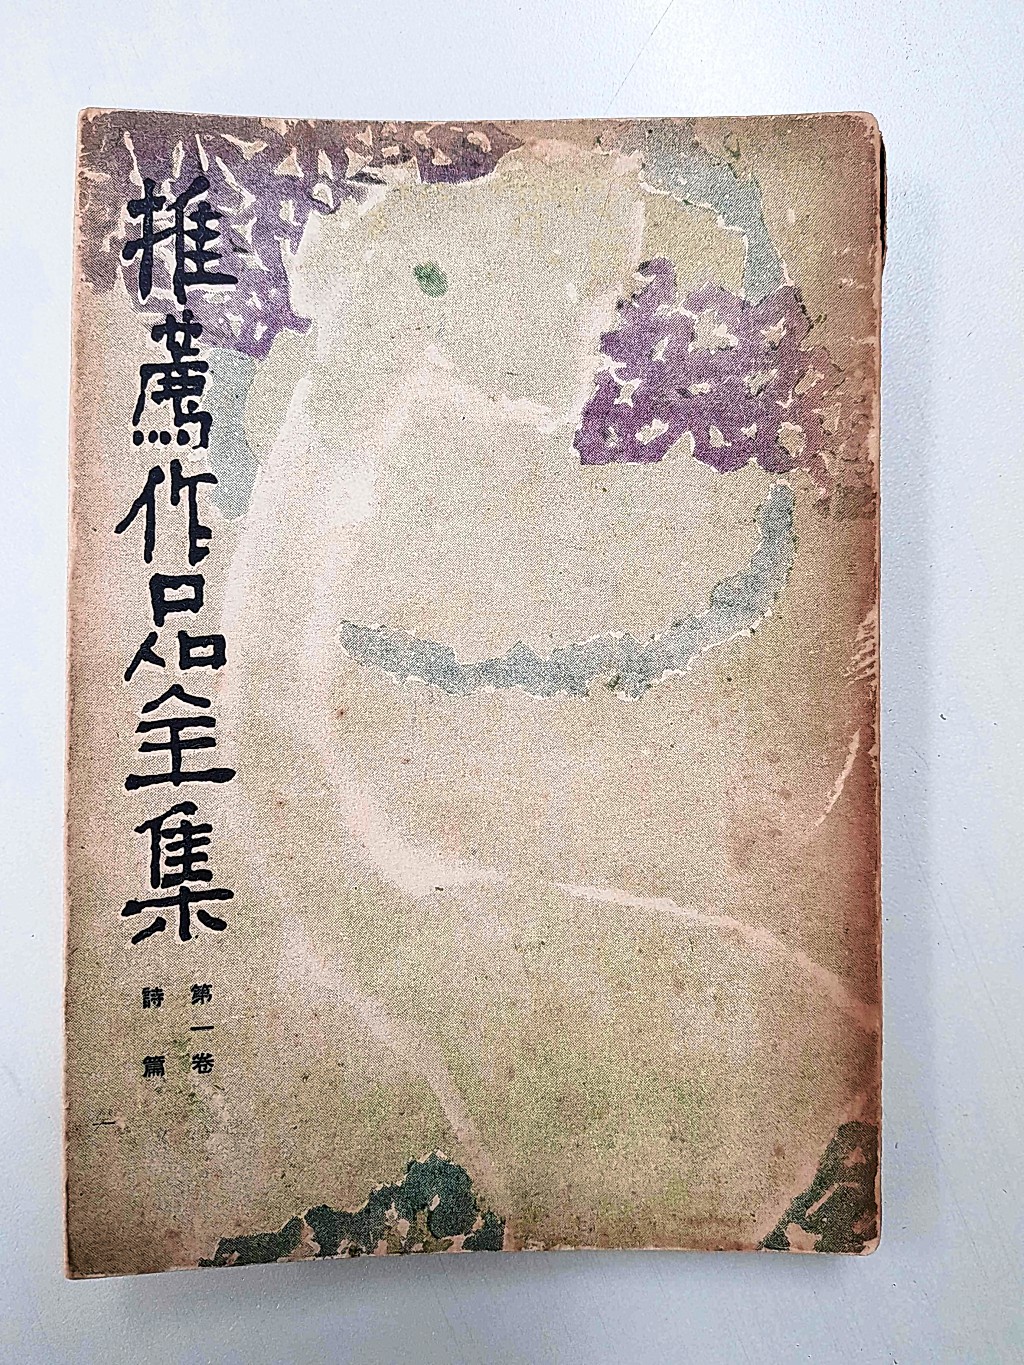 推薦作品全集
第一卷
詩篇